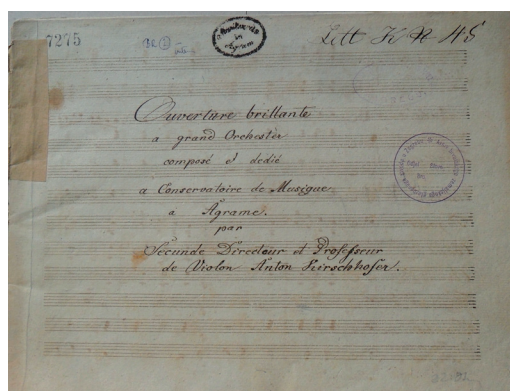 7275
Litt K N 45
in
Agram
Ouverture brillante
a grand Orchester
composé et dedié
a Conservatoire de Musique
a Agrame.
par
Secunde Directeur et Professeur
de Violon Anton Kirschhofer.